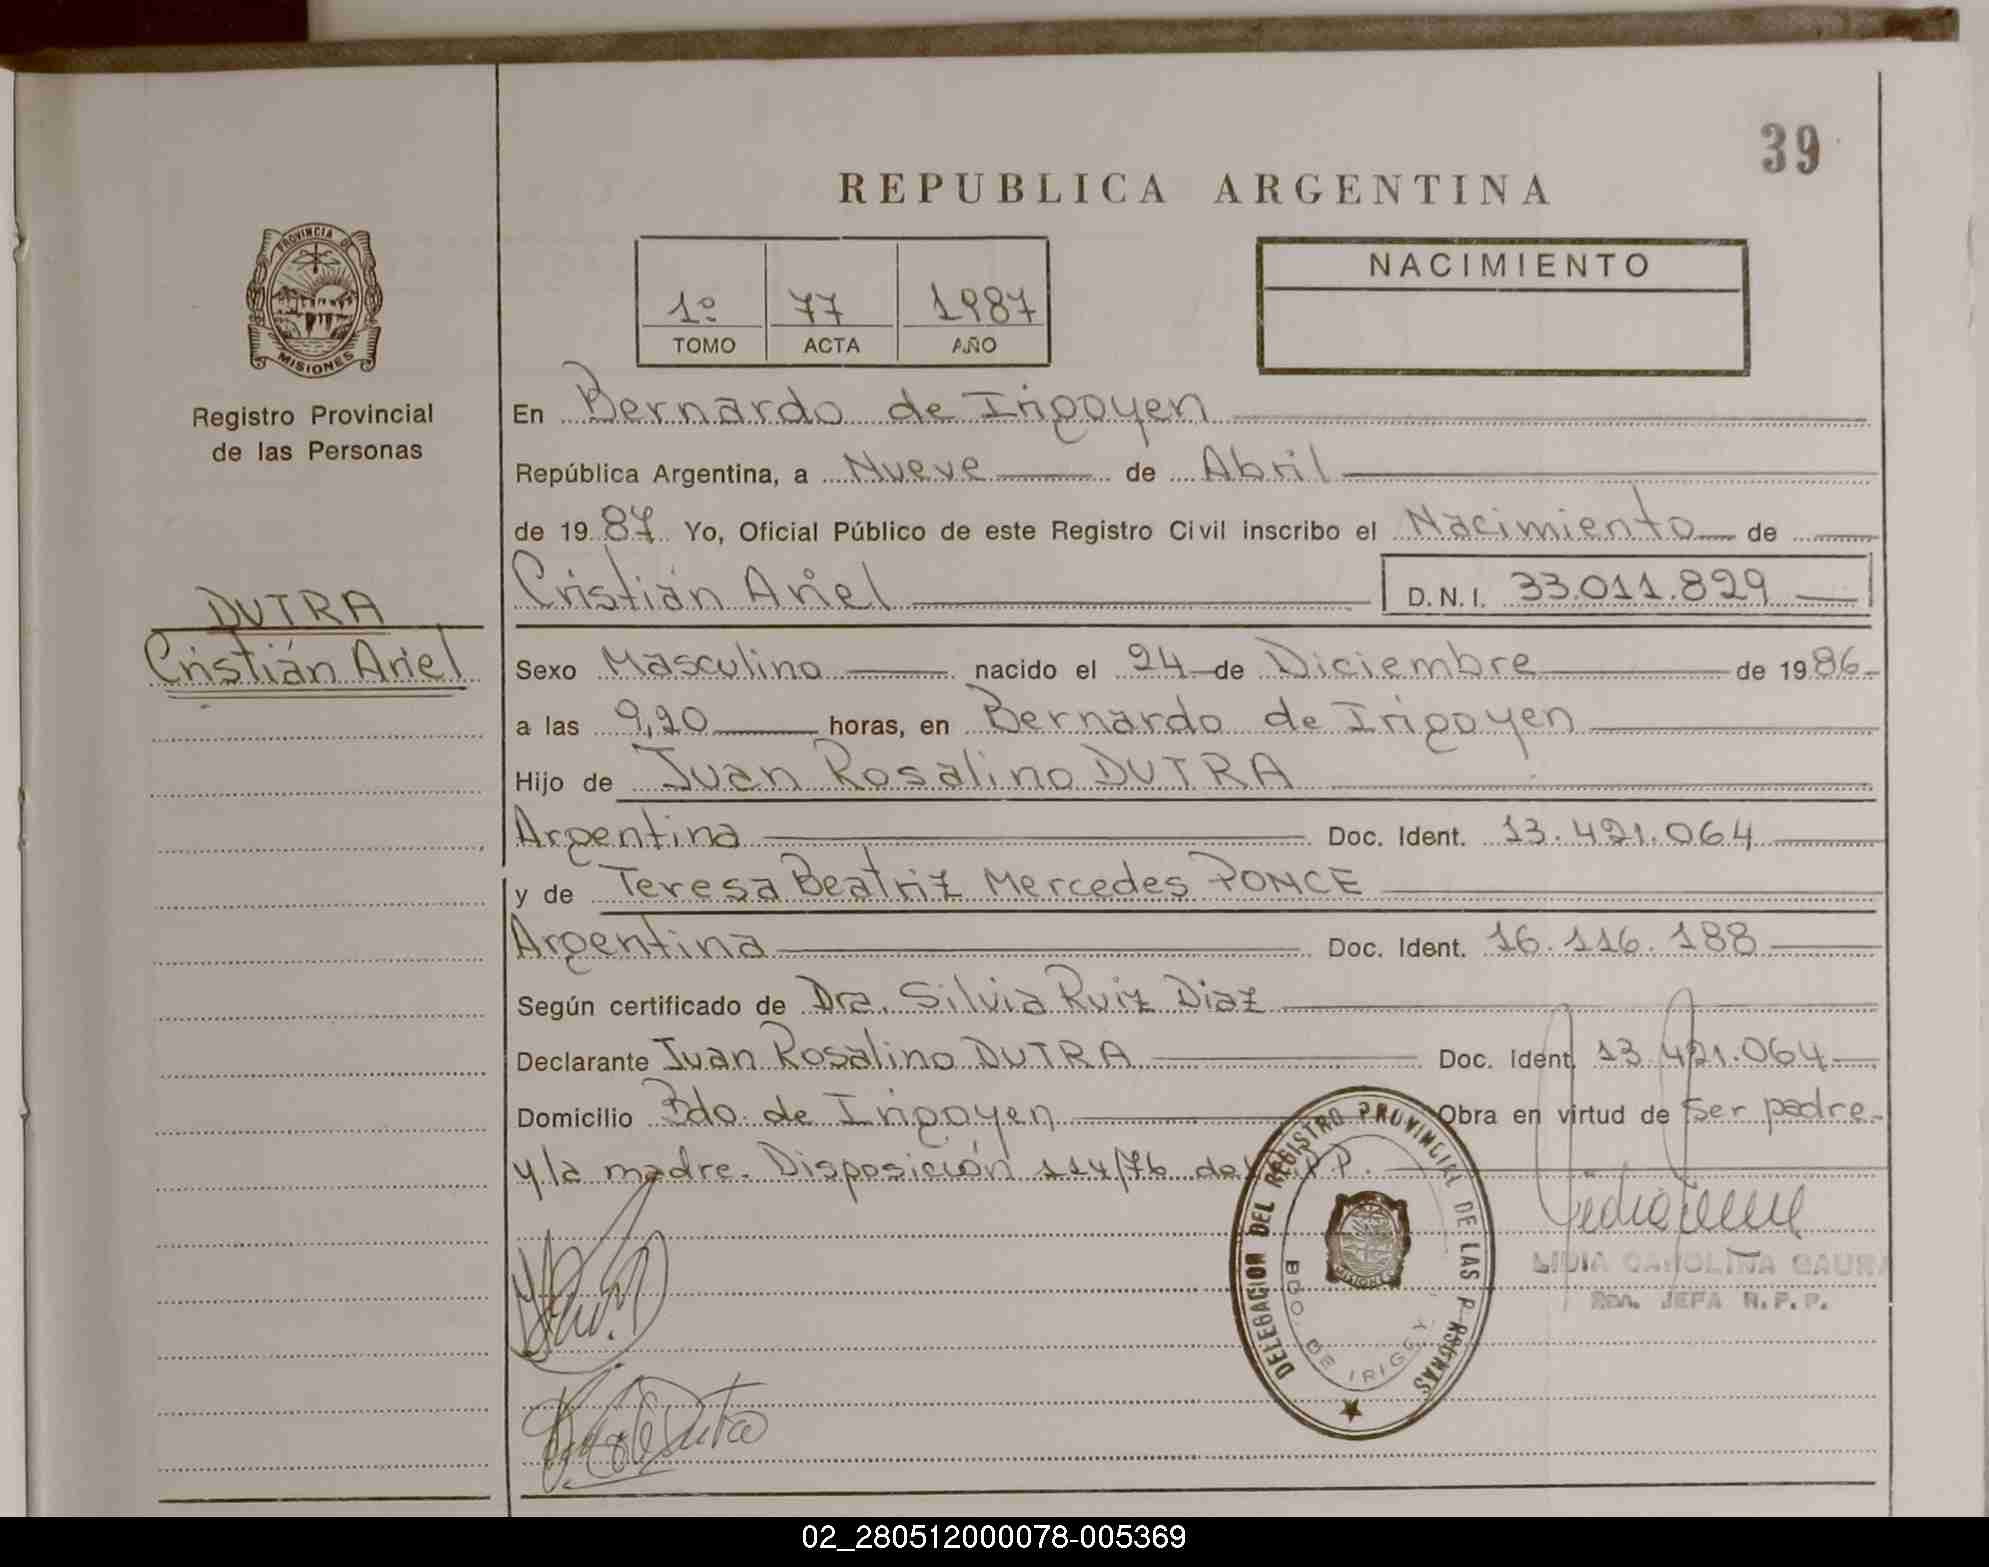 39
REPUBLICA ARGENTINA
PROVINCIA DE
MISIONES
Registro Provincial
de las Personas
1º 77 1987
TOMO ACTA AÑO
NACIMIENTO
En Bernardo de Irigoyen
República Argentina, a Nueve de Abril
de 1987 Yo, Oficial Público de este Registro Civil inscribo el Nacimiento de
Cristián Ariel D.N.I. 33.011.829
DUTRA
Cristián Ariel
Sexo Masculino nacido el 24 de Diciembre de 1986
a las 9,20 horas, en Bernardo de Irigoyen
Hijo de Juan Rosalino DUTRA
Argentina Doc. Ident. 13.421.064
y de Teresa Beatriz Mercedes PONCE
Argentina Doc. Ident. 16.116.188
Según certificado de Dra. Silvia Ruiz Diaz
Declarante Juan Rosalino DUTRA Doc. Ident. 13.421.064
Domicilio Bdo. de Irigoyen Obra en virtud de ser padre
y la madre. Disposición 114/76 del P.P.
DELEGACION DEL REGISTRO PROVINCIAL DE LAS PERSONAS
BDO. DE IRIGOY
MISIONES
LIDIA CAROLINA GAURA
JEFA R.P.P.
02_280512000078-005369